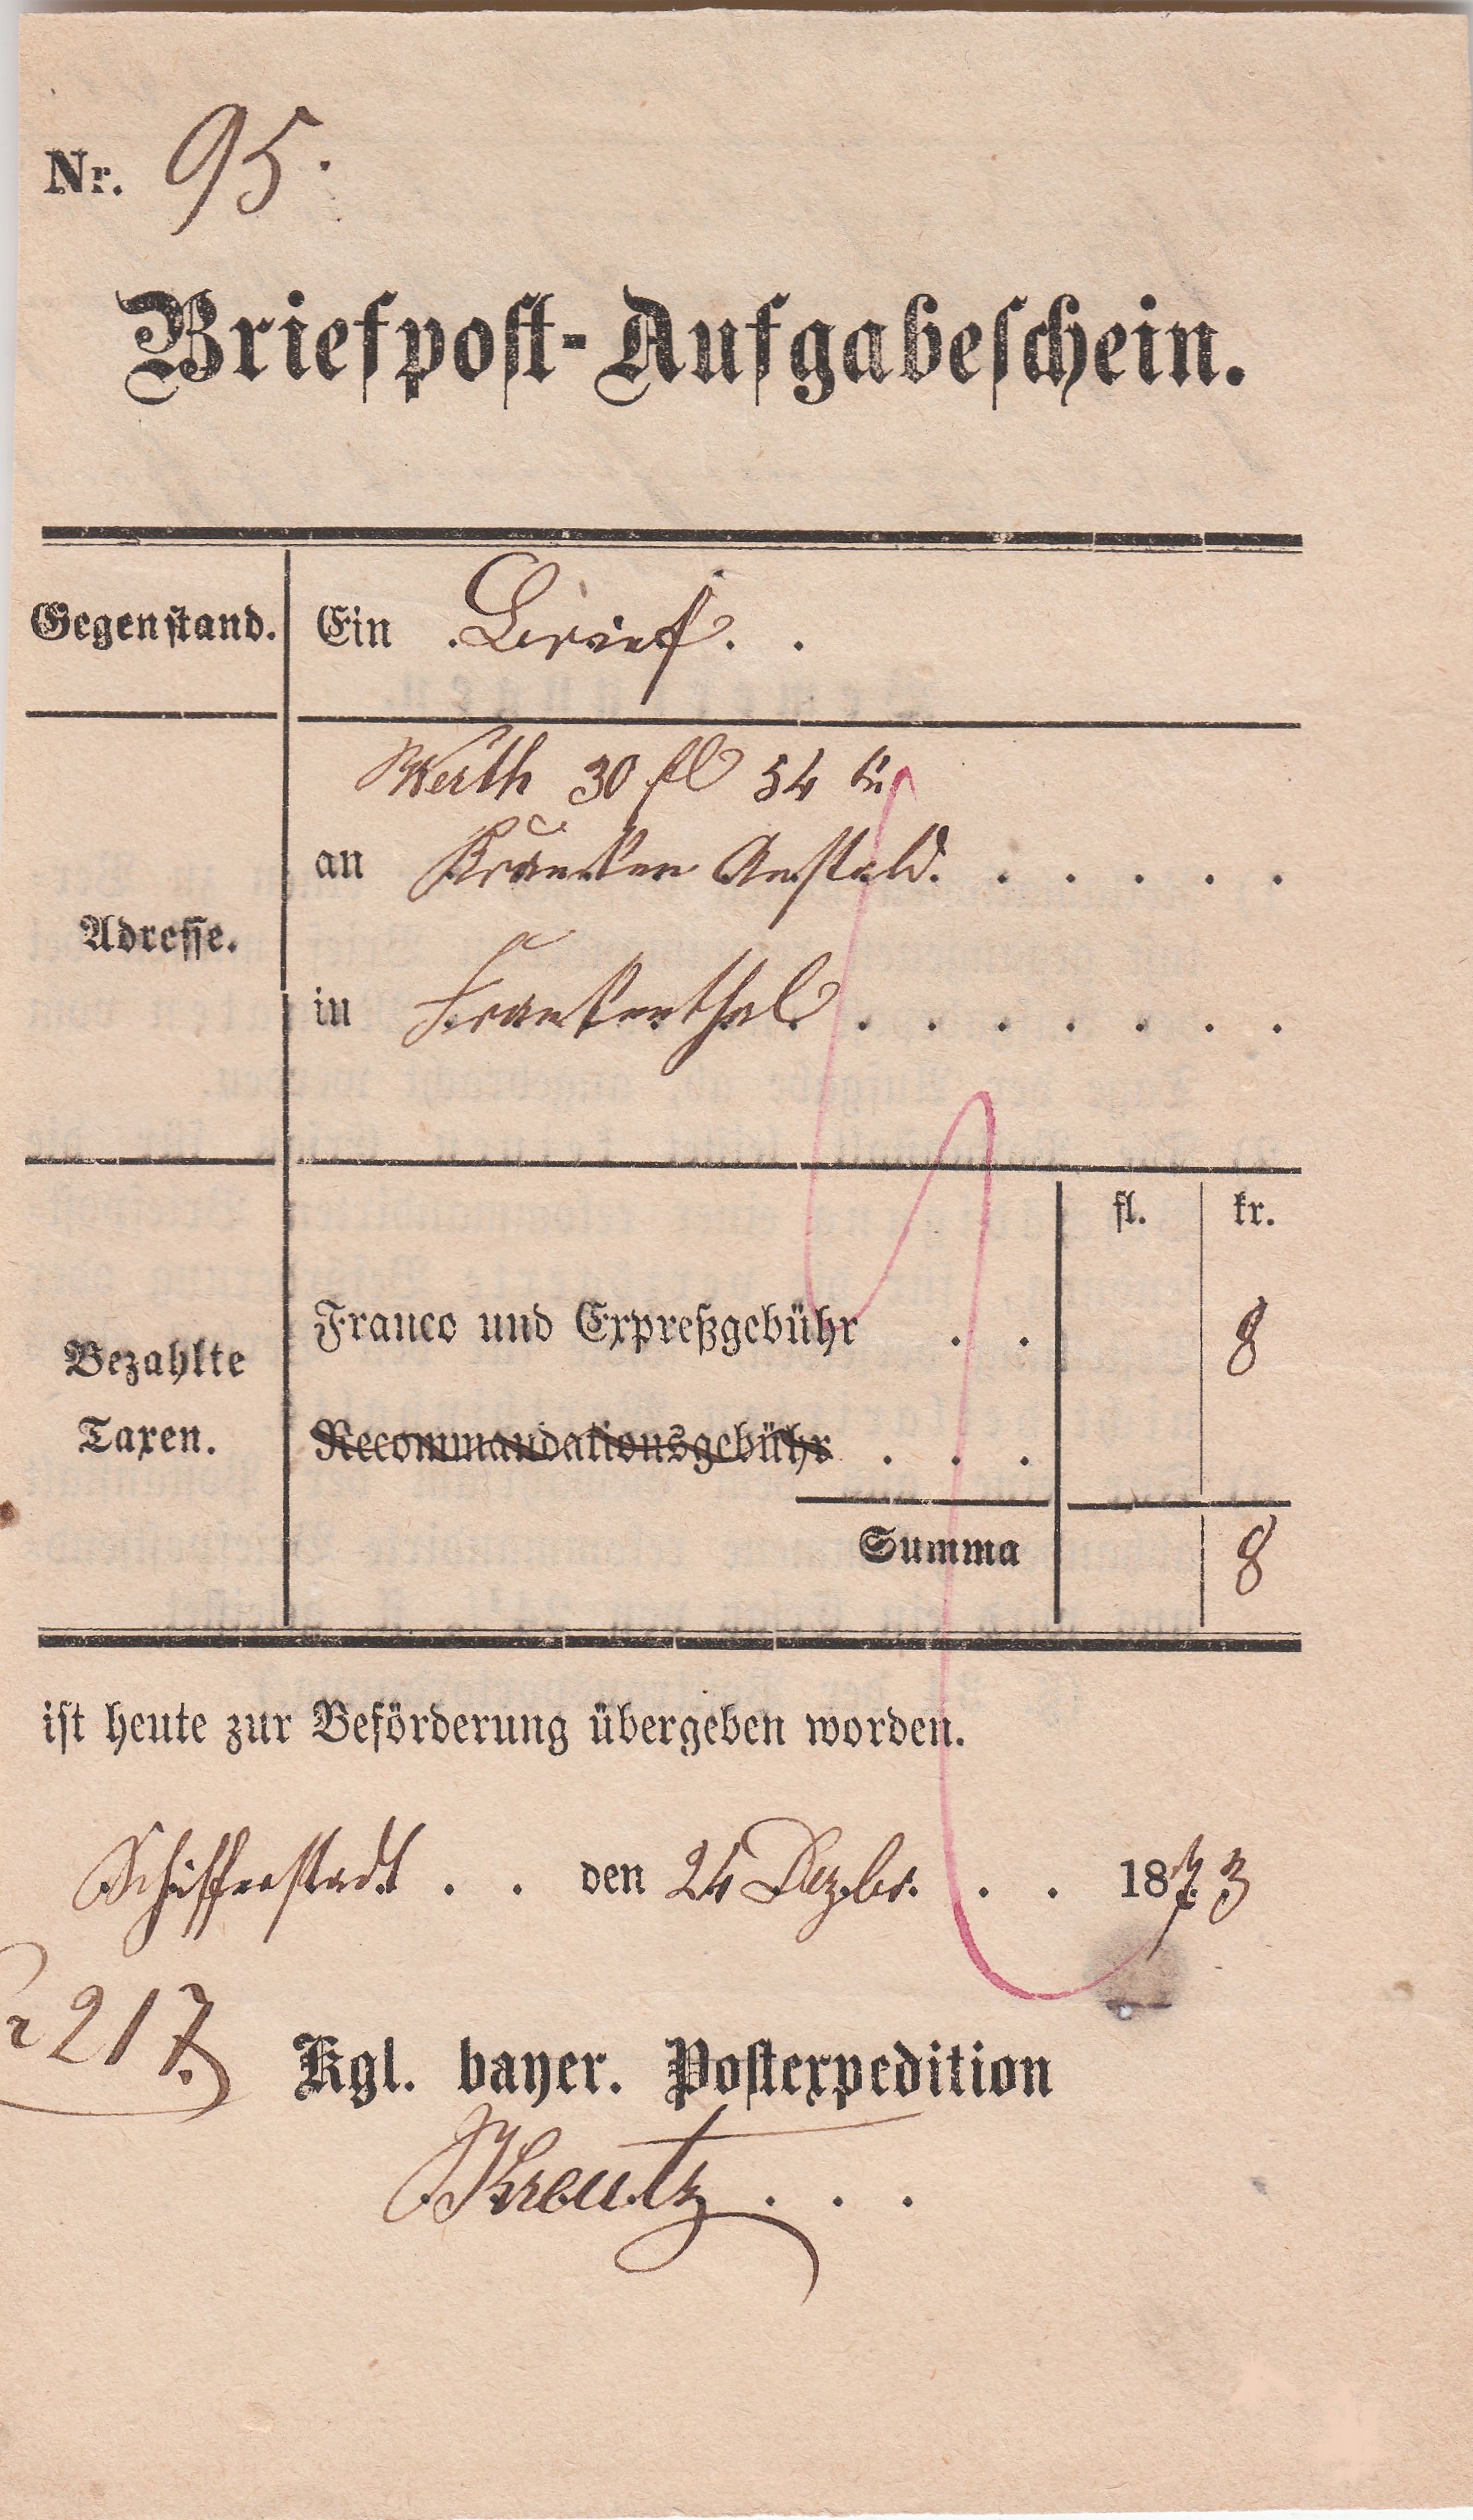 Nr. 95.
Briefpost-Aufgabeschein.
Gegenstand. Ein Brief.
Werth 30 fl 54 kr
an Kranken Anstald.
Adresse.
in Frankenthal
fl. kr.
Franco und Expreßgebühr . . 8
Bezahlte
Taxen.
Recommandationsgebühr . . .
Summa 8
ist heute zur Beförderung übergeben worden.
Schifferstadt . . den 24 Dezbr. . . 1873
217.
Kgl. bayer. Postexpedition
Kreutz . . .